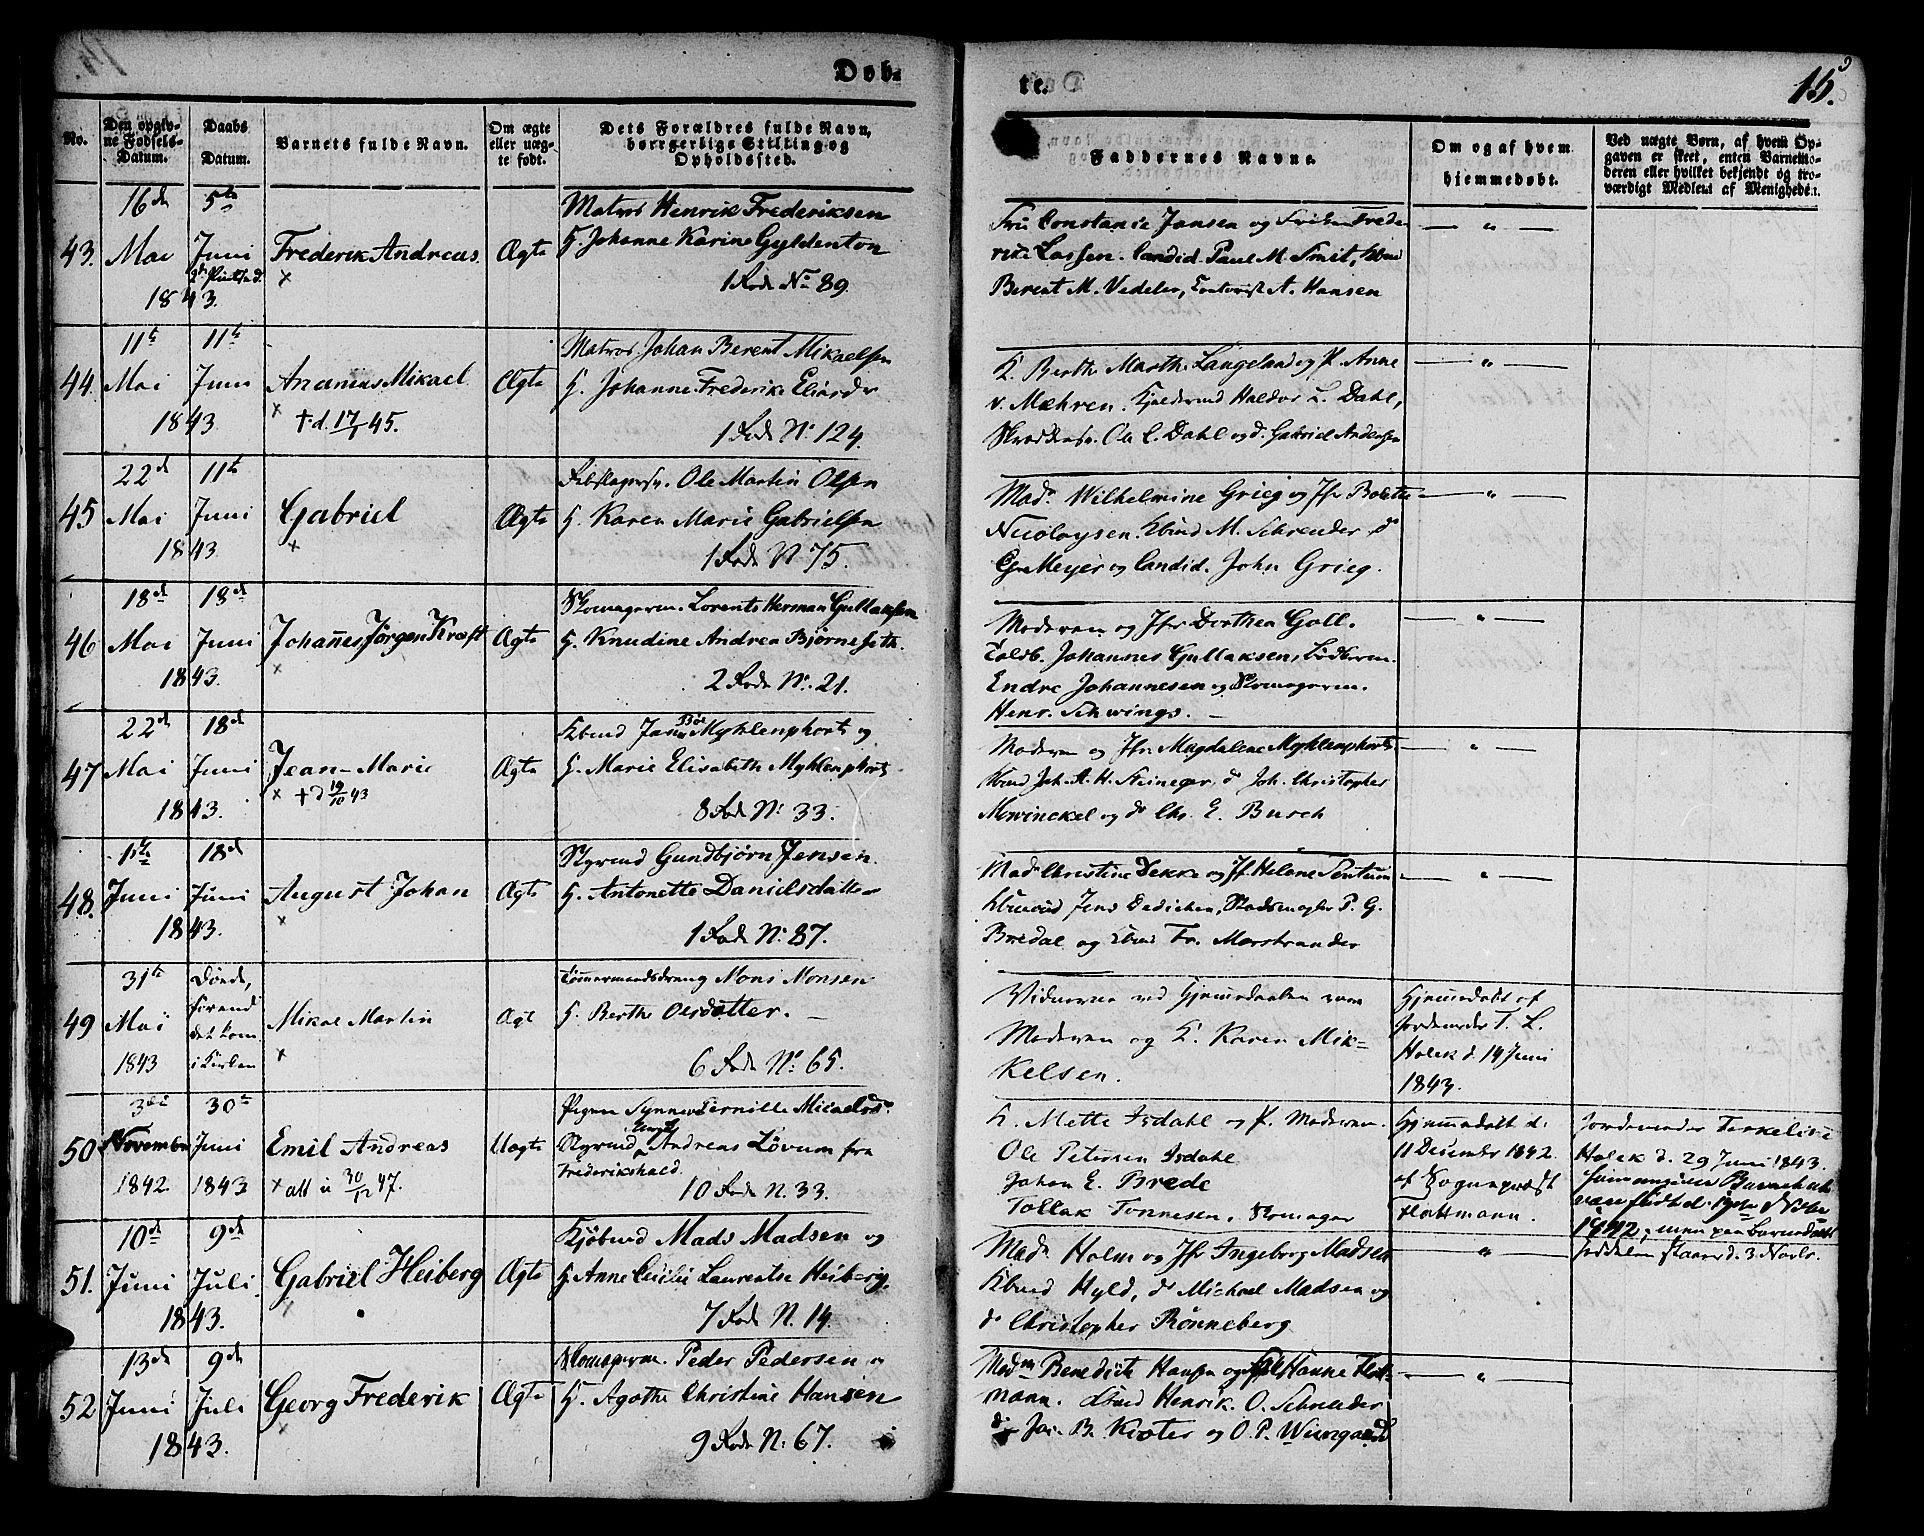 Døb-
te.
15.
No.
Den opgiv-
ne Fødsels-
Datum.
Daabs
Datum.
Barnets fulde Navn.
Om ægte
eller uæg-
te født.
Dets Forældres fulde Navn,
borgerlige Stilling og
Opholdssted.
Faddernes Navne.
Om og af hvem
hjemmedøbt.
Ved uægte Børn, af hvem Op-
gaven er skeet, enten Barnemo-
deren eller hvilket bekjendt og tro-
værdigt Medlem af Menigheden.
43. 16de Mai 1843. 5te Juni 1843.
Frederik Andreas. Ægte
Matros Henrik Frederiksen
H. Johanne Karine Gyldenton
1 Rode No 89.
Fru Constance Jansen og Frede-
rike Lassen. Candid. Paul M. Smit, Kbmd
Berent M. Vedeler, Contorist A. Hansen
44. 11te Mai 1843 11te Juni
Ananias Mikael. Ægte
× † d. 17/1 45.
Matros Johan Berent Mikaelsen
H. Johanne Frederike
1 Rode No 124.
K. Berthe Marthe Langeland og P. Anne
v. Mehren. Haldor L. Dahl,
Ole C. Dahl og d. Gabriel Andersen
45 22de Mai 1843 11te Juni
Gabriel Ægte
Ole Martin Olsen
H. Karen Marie Gabrielsen
1 Rode N 75.
Mad. Wilhelmine Grieg og Jfr Bolette
Nicolaysen. Kbmd M. Schreuder, do
Meyer og Candid. John Grieg.
46 18de Mai 1843. 18de Juni
Johannes Jörgen Kraft Ægte
Skomagerm. Lorents Herman Gullaksen
H. Knudine Andrea Bjørneseth.
2 Rode No. 21.
Moderen og Jfr Dorthea Gall.
Toldb. Johannes Gullaksen, Bødkerm.
Endre Johannesen og Skomagerm.
Henr. Schwings. –
47 22de Mai 1843. 18de Juni
Jean-Marie Ægte
× † d 19/10 43
Kbmd Jan Böe Myhlenphort og
H. Marie Elisabeth Myhlenphort
8 Rode No 33.
Moderen og Jfr. Magdalene Myhlenphort
Kbmd Joh. A. H. Steineger, do Joh. Christopher
Mowinckel og do Chr. E. Busch
48. 1ste Juni 1843. 18de Juni
August Johan Ægte
Styrmd Gundbjørn Jensen.
H. Antonette Danielsdatter
1 Rode No 87.
Mad Christine Dekke og Jf Helene Sontum
Kbmd Jens Dedichen, Stadsmægler P. G.
Bredal og Kbmd Fr. Morstrander
49 31te Mai 1843
Døde,
førend
det kom
i Kirken
Mikal Martin Ægt
Tømmermandsdreng Mons Monsen
H. Berthe Olesdatter. –
6 Rode No. 65.
Vidnerne ved Hjemmedaaben vare
Moderen og K. Karen Mik-
kelsen.
Hjemmedøbt af
Jordemoder T. L.
Holck d. 14 Juni
1843.
50 3die November 1842. 30te Juni 1843
Emil Andreas Uægte
× att u 30/12 47.
Pigen Synneve Pernille Micaelsd.
Ungk. Styrmd Andreas Løvum fra
Frederikshald.
10 Rode N. 33.
K. Mette Isdahl og P. Moderen.
Ole Petersen Isdahl
Johan E. Brede
Tollak Tonnesen, Skomager
Hjemmedøbt d.
11 December 1842.
af Sognepræst
Flottmann.
Jordemoder Torkeline
Holck d. 29 Juni 1843.
1842, men paa Barnedaabs
seddelen staaer d. 3 Novbr.
51. 10de Juni 1843. 9de Juli
Gabriel Heiberg Ægte
Kjøbmd Mads Madsen og
H. Anne Cecilie Laurentse Heiberg.
7 Rode N. 14.
Mad. Holm og Jfr Ingeborg Madsen
Kbmd Hyld, do Michael Madsen og
do Christopher Rönneberg
52 13de Juni 1843. 9de Juli
Georg Frederik Ægte
Skomagerm. Peder Pedersen og
H. Agathe Christine Hansen
9 Rode N: 67.
Madm Benedicte Hansen og Hanne Flott-
mann. Kbmd Henrik. O. Schreuder
do Jac. B. Kroter og O. P. Wiingaard